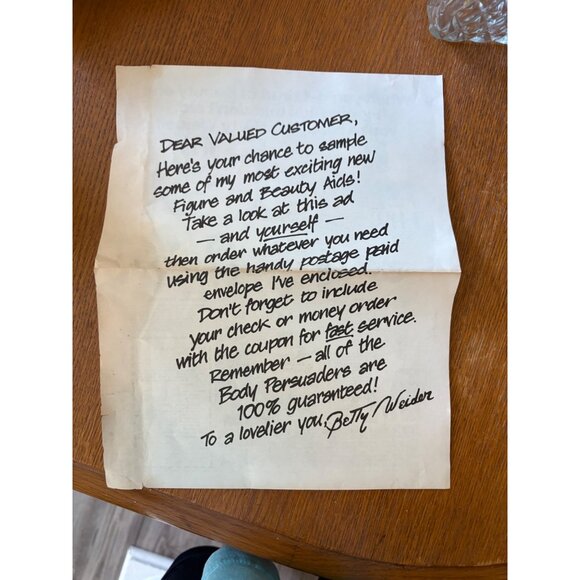 DEAR VALUED CUSTOMER,
Here's your chance to sample
some of my most exciting new
Figure and Beauty Aids!
Take a look at this ad
— and yourself —
then order whatever you need
using the handy postage paid
envelope I've enclosed.
Don't forget to include
your check or money order
with the coupon for fast service.
Remember — all of the
Body Persuaders are
100% guaranteed!
To a lovelier you, Betty Weider